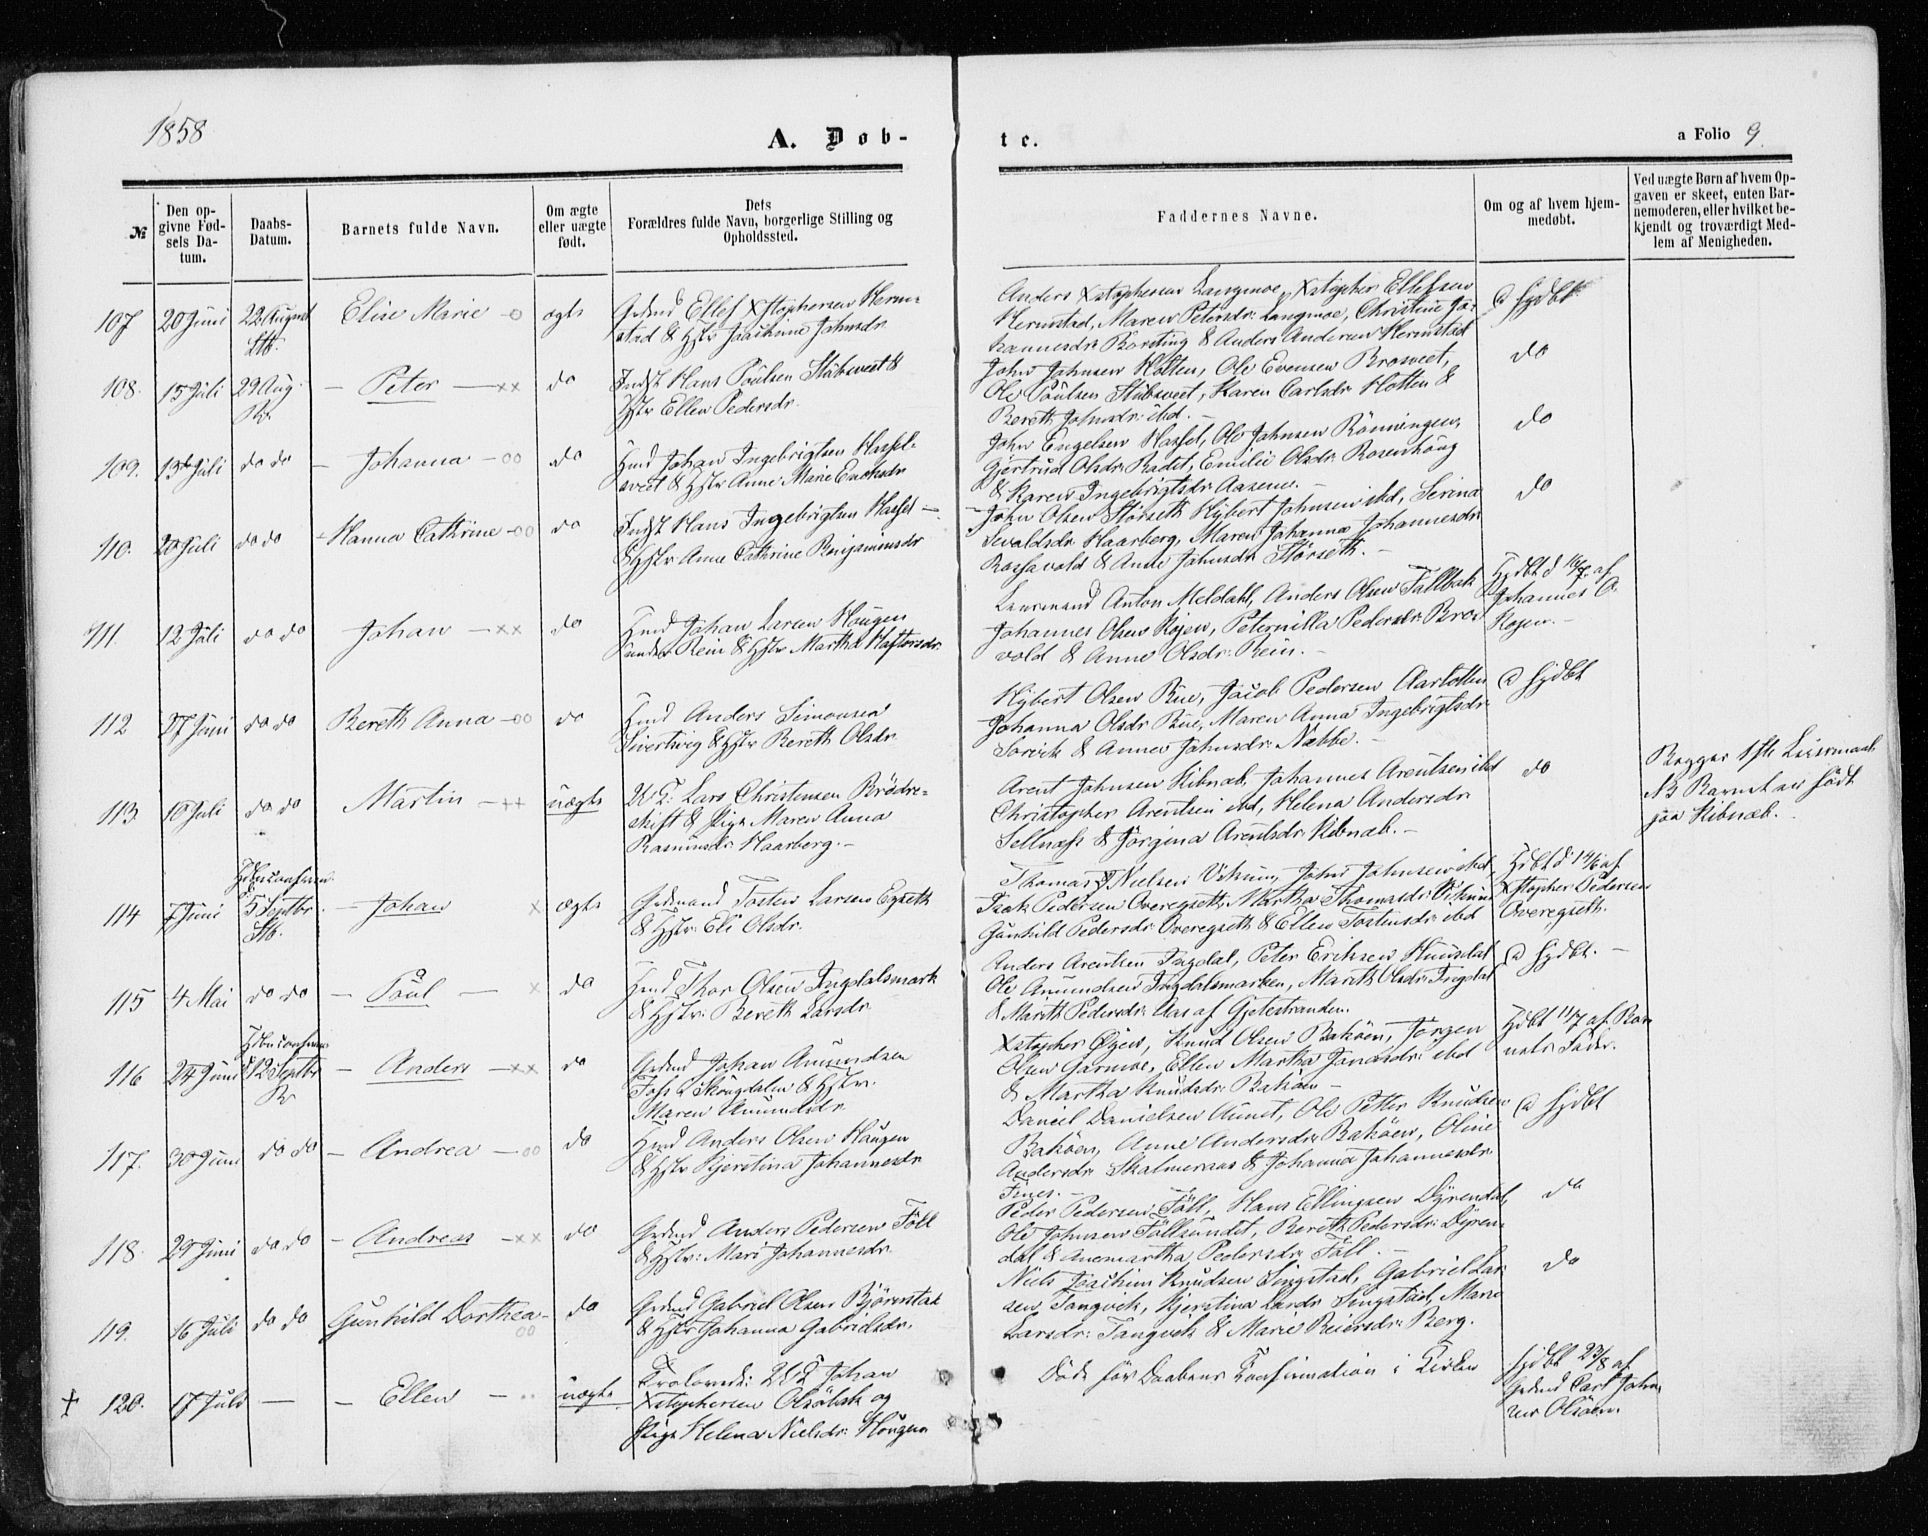 1858
A. Døb-
te.
a Folio 9.
№
Den op-
givne Fød-
sels Da-
tum.
Daabs-
Datum.
Barnets fulde Navn.
Om ægte
eller uægte
født.
Dets
Forældres fulde Navn, borgerlige Stilling og
Opholdssted.
Faddernes Navne.
Om og af hvem hjem-
medøbt.
Ved uægte Børn af hvem Op-
gaven er skeet, enten Bar-
nemoderen, eller hvilket be-
kjendt og troværdigt Med-
lem af Menigheden.
107 20 Juni 22 August Elise Marie ægte
Gdmd Ellef Xstophersen Herm-
stad & Hstr Joachime Johnsdr
Anders Xstophersen Langmoe, Xstopher Ellefsen
Hermstad, Maren Petersdr Langmoe, Christine Jo-
hannesdr Borsting & Anders Andersen Hermstad
hjdbt
108. 15 Juli 29 Aug. Peter do
Indst Hans Poulsen Stubsveet &
Hstr Ellen Pedersdr.
John Johnsen Holten, Ole Evensen Brosveet,
Ole Poulsen Stubsveet, Karen Carlsdr Holten &
Bereth Johnsdr ibd.
do
109. 13de Juli do do Johanna do
Hmd Johan Ingebrigtsen Hassel-
sveet & Hstr Anne Marie Enoksdr
John Engelsen Hassel, Ole Johnsen Rönningen,
Gjertrud Olsdr Radet, Emilie Olsdr Rosenhoug
& Karen Ingebrigtsdr Aasene.
do
110. 20 Juli do do Hanna Cathrine do
Indst Hans Ingebrigtsen Hassel
& Hstr Anne Cathrine Benjaminsdr
John Olsen Störseth Hybert Johnsen ibd, Serina
Sevaldsdr Haarberg, Maren Johanna Johannesdr
Rossavold & Anne Johnsdr Störseth.
do
111. 12 Juli do do Johan do
Hmd Johan Larsen Hougen
under Rein & Hstr Martha Haftorsdr.
Lensmand Anton Meldahl, Anders Olsen Fallbak
Johannes Olsen Kojen, Peternilla Pedersdr Bros-
vold & Anne Olsdr Rein.
Hjdbt d af
Johannes O.
Kojen.
112 27 Juni do do Bereth Anna do
Hmd Anders Simonsen
Sivertsvig & Hstr Bereth Olsdr
Hybert Olsen Rue, Jacob Pedersen Aarlotten
Johanna Olsdr Rue, Maren Anna Ingebrigtsdr
Sorvik & Anne Johnsdr Næbbe.
hjdbt
113. 10 Juli do do Martin uægte
U&T: Lars Christensen Brödre-
skift & Pige Maren Anna
Rasmusdr Haarberg.
Arent Johnsen Kibnæb, Johannes Arentsen ibd
Christopher Arentsen ibd, Helena Andersdr
Sellnæss & Jörgina Arentsdr Kibnæb.
do
Begges 1ste Leiermaal
NB Barnet er födt
paa Kibnæb.
114 7 Juni 5 Septbr Johan ægte
Gaardmand Tosten Larsen Egseth
& Hstr: Eli Olsdr.
Thomas Nielsen Vitsun, John Johnsen ibd,
Isak Pedersen Overegseth, Martha Thomasdr Vitsun
Gunhild Pedersdr Overegseth & Ellen Tostensdr ibd
Hjdbt d 14/6 af
Xstopher Pedersen
Overegseth.
115 4 Mai do do Poul do
Hmd Thor Olsen Ingdalsmark
& Hstr: Bereth Larsdr
Anders Arentsen Ingdal, Peter Eriksen Kunsdal
Ole Amundsen Ingdalsmarken, Marith Olsdr Ingdal
& Marith Pedersdr Aas af Gjetestranden.
hjdbt.
116 24 Juni 12 Septbr Anders do
Gdmd Johan Amundsen
Skougdalen & Hstr:
Maren Amundsdr
Xstopher Öyen, Knud Olsen Baköen, Jörgen
Olsen Garmoe, Ellen Martha Jonasdr ibd
& Martha Knudsdr Baköen
Hjdbt 11/7 af Bar-
nets Fader.
117. 30 Juni do do Andrea do
Hmd Anders Olsen Haugen
& Hstr Kjerstina Johannesdr
Daniel Danielsen Aunet, Ole Petter Knudsen
Baköen, Anne Andersdr Baköen, Oline
Andersdr Skalmeraas & Johanna Johannesdr
hjdbt
118. 29 Juni do do Andreas do
Gdmd Anders Pedersen Föll
& Hstr: Mari Johannesdr
Peder Pedersen Föll, Hans Ellingsen Dyrendal,
Ole Johnsen Föllsundet, Bereth Pedersdr Dyren-
dal & Anemartha Pedersdr Föll.
do
119. 16 Juli do do Gunhild Dorthea do
Gdmd Gabriel Olsen Björnstak
& Hstr Johanna Gabrielsdr.
Niels Joachim Knudsen Singstad, Gabriel Lar-
sen Tangvik, Kjerstina Larsdr Singstad, Marie
Larsdr Tangvik & Marie Reiersdr Berg.
do
120. 17 Juli Ellen uægte
Trolovede: U&T Johan
Xstophersen Olsöbak og
Pige Helena Nielsdr Hougen
Döde för Daabens Confirmation i Kirken
hjdbt 23/8 af
Gdmd Carl Johan-
sen Olsöen.